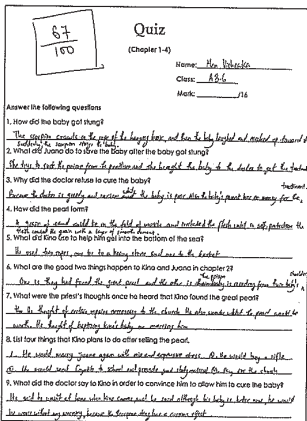 67
100
Quiz
(Chapter 1-4)
Name:
Class: A3-6
Mark: /16
Answer the following questions
1. How did the baby got stung?
The scorpion crawls on the rope of the hanging box, and then the baby laughed and reached up toward it
Suddenly, the scorpion stings the baby.
2. What did Juana do to save the baby after the baby got stung?
She tries to suck the poison from the and she brought the baby to the doctor to get the
treatment.
3. Why did the doctor refuse to cure the baby?
Because the doctor is greedy and racism while the baby is poor. Also the baby's parent has no money for the
4. How did the pearl form?
A grain of sand could lie in the fold of muscle and irritated the flesh until in self-protection the
flesh coated the grain with a layer of smooth cement.
5. What did Kino use to help him get into the bottom of the sea?
He used two ropes, one tie to a heavy stone and one to the basket
6. What are the good two things happen to Kino and Juana in chapter 2?
One is they had found the great pearl and the other is the swelling is receding from the baby's
shoulder
7. What were the priest's thoughts once he heard that Kino found the great pearl?
He thought of certain repairs necessary to the church. He also wonder what the pearl would be
worth. He thought of baptizing Kino's baby or marrying him
8. List four things that Kino plans to do after selling the pearl.
1. He would marry Juana again with nice and expensive dress. 2. He would buy a rifle
3. He would send Coyotito to school and 4. pay for the church
9. What did the doctor say to Kino in order to convince him to allow him to cure the baby?
He said he wasn't at home when Kino comes and he said although his baby is better now, he would
be worse without any warning, because the scorpion sting has a curious effect